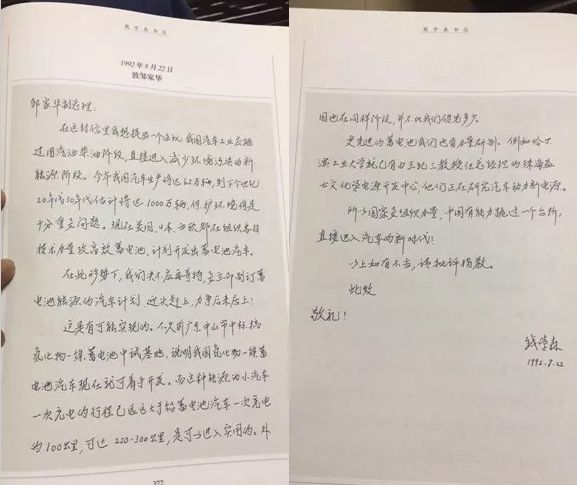 钱学森书信
1992年8月22日
致邹家华
邹家华副总理：
在这封信里我想提出一个建议：我国汽车工业应跳
过用汽油柴油阶段，直接进入减少环境污染的新
能源阶段。今年我国汽车生产将达62万辆，到下个世纪
20年代10年代估计将达1000万辆，保护环境将是
十分重要问题。现在美国、日本、西欧都在组织各自
技术力量攻高效蓄电池，计划开发出蓄电池汽车。
在此形势下，我们决不应再等待，要立即制订蓄
电池能源的汽车计划，迎头赶上，力争后来居上！
这是有可能实现的。不久前广东中山市中标搞
氢化物—镍蓄电池中试基地，说明我国氢化物—镍蓄
电池汽车现在就可着手开发。而这种能源的小汽车
一次充电的行程已远远大于铅蓄电池汽车一次充电
的100公里，可达250-300公里，是可以进入实用的。外
377
钱学森书信
国也在同样阶段，并不比我们领先多少。
更先进的蓄电池我们也有力量研制。例如哈尔
滨工业大学就已有由王纪三教授任总经理的珠海益
士文化学电源开发中心，他们正在研究汽车动力新电源。
所以国家要组织力量，中国有能力跳过一个台阶，
直接进入汽车的新时代！
以上如有不当，请批评指教。
此致
敬礼！
钱学森
1992.8.22